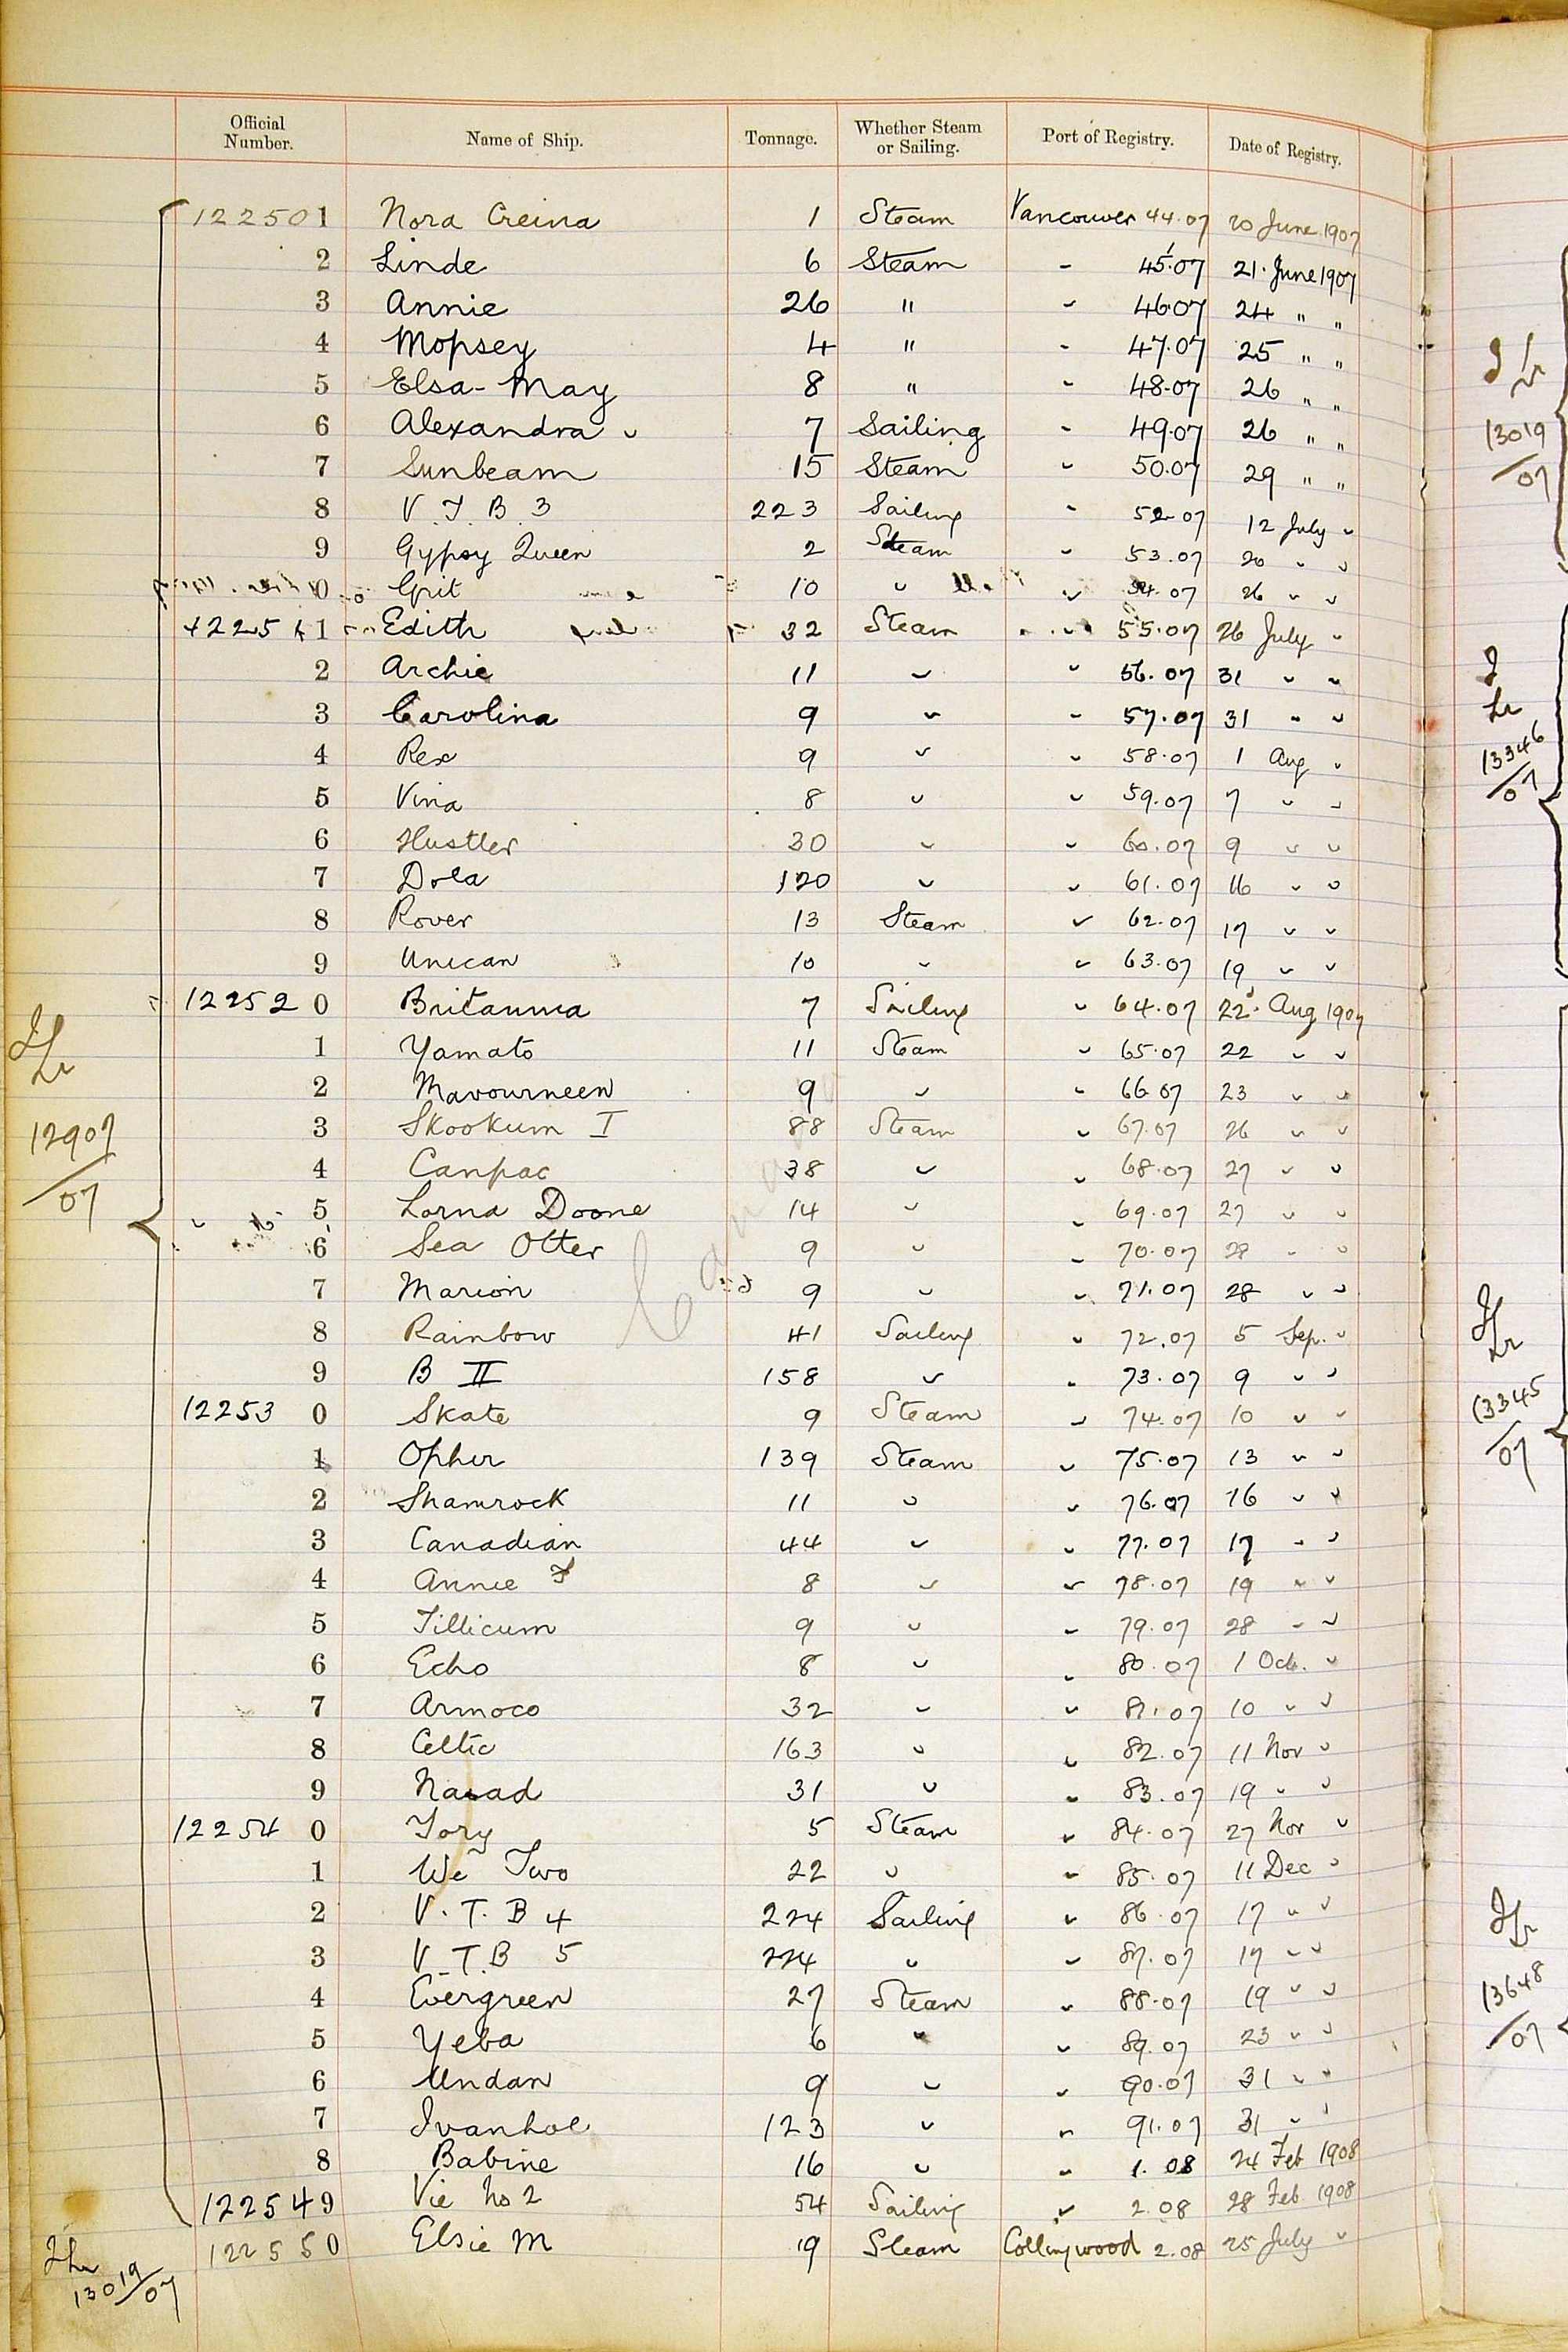 Official Number. Name of Ship. Tonnage. Whether Steam or Sailing. Port of Registry. Date of Registry.
122501 Nora Creina 1 Steam Vancouver 44.07 20 June 1907
2 Linde 6 Steam - 45.07 21. June 1907
3 Annie 26 " - 46.07 24 " "
4 Mopsey 4 " - 47.07 25 " "
5 Elsa-May 8 " - 48.07 26 " "
6 Alexandra 7 Sailing - 49.07 26 " "
7 Sunbeam 15 Steam " 50.07 29 " "
8 V.T.B.3 223 Sailing " 52.07 12 July "
9 Gypsy Queen 2 Steam " 53.07 20 " "
0 Grit 10 " " 54.07 26 " "
122511 Edith 32 Steam " 55.07 26 July "
2 Archie 11 " " 56.07 31 " "
3 Carolina 9 " " 57.07 31 " "
4 Rex 9 " " 58.07 1 Aug "
5 Vina 8 " " 59.07 7 " "
6 Hustler 30 " " 60.07 9 " "
7 Dola 120 " " 61.07 16 " "
8 Rover 13 Steam " 62.07 17 " "
9 Unican 10 " " 63.07 19 " "
122520 Britannia 7 Sailing " 64.07 22. Aug 1907
1 Yamato 11 Steam " 65.07 22 " "
2 Mavourneen 9 " " 66.07 23 " "
3 Skookum I 88 Steam " 67.07 26 " "
4 Canpac 38 " " 68.07 27 " "
5 Lorna Doone 14 " " 69.07 27 " "
6 Sea Otter 9 " " 70.07 28 " "
7 Marion 9 " " 71.07 28 " "
8 Rainbow 41 Sailing " 72.07 5 Sep. "
9 B II 158 " " 73.07 9 " "
122530 Skate 9 Steam " 74.07 10 " "
1 Ophir 139 Steam " 75.07 13 " "
2 Shamrock 11 " " 76.07 16 " "
3 Canadian 44 " " 77.07 17 " "
4 Annie F 8 " " 78.07 19 " "
5 Tillicum 9 " " 79.07 28 " "
6 Echo 8 " " 80.07 1 Oct. "
7 Armoco 32 " " 81.07 10 " "
8 Celtic 163 " " 82.07 11 Nov "
9 Naiad 31 " " 83.07 19 " "
122540 Tory 5 Steam " 84.07 27 Nov "
1 We Two 22 " " 85.07 11 Dec "
2 V.T.B 4 224 Sailing " 86.07 17 " "
3 V.T.B 5 224 " " 87.07 17 " "
4 Evergreen 27 Steam " 88.07 19 " "
5 Yeba 6 " " 89.07 23 " "
6 Undan 9 " " 90.07 31 " "
7 Ivanhoe 123 " " 91.07 31 " "
8 Babine 16 " " 1.08 24 Feb 1908
122549 Vic No 2 54 Sailing " 2.08 28 Feb. 1908
122550 Elsie M 19 Steam Collingwood 2.08 25 July "
12907/07
13019/07
Canada
13019/07
13346/07
13345/07
13648/07